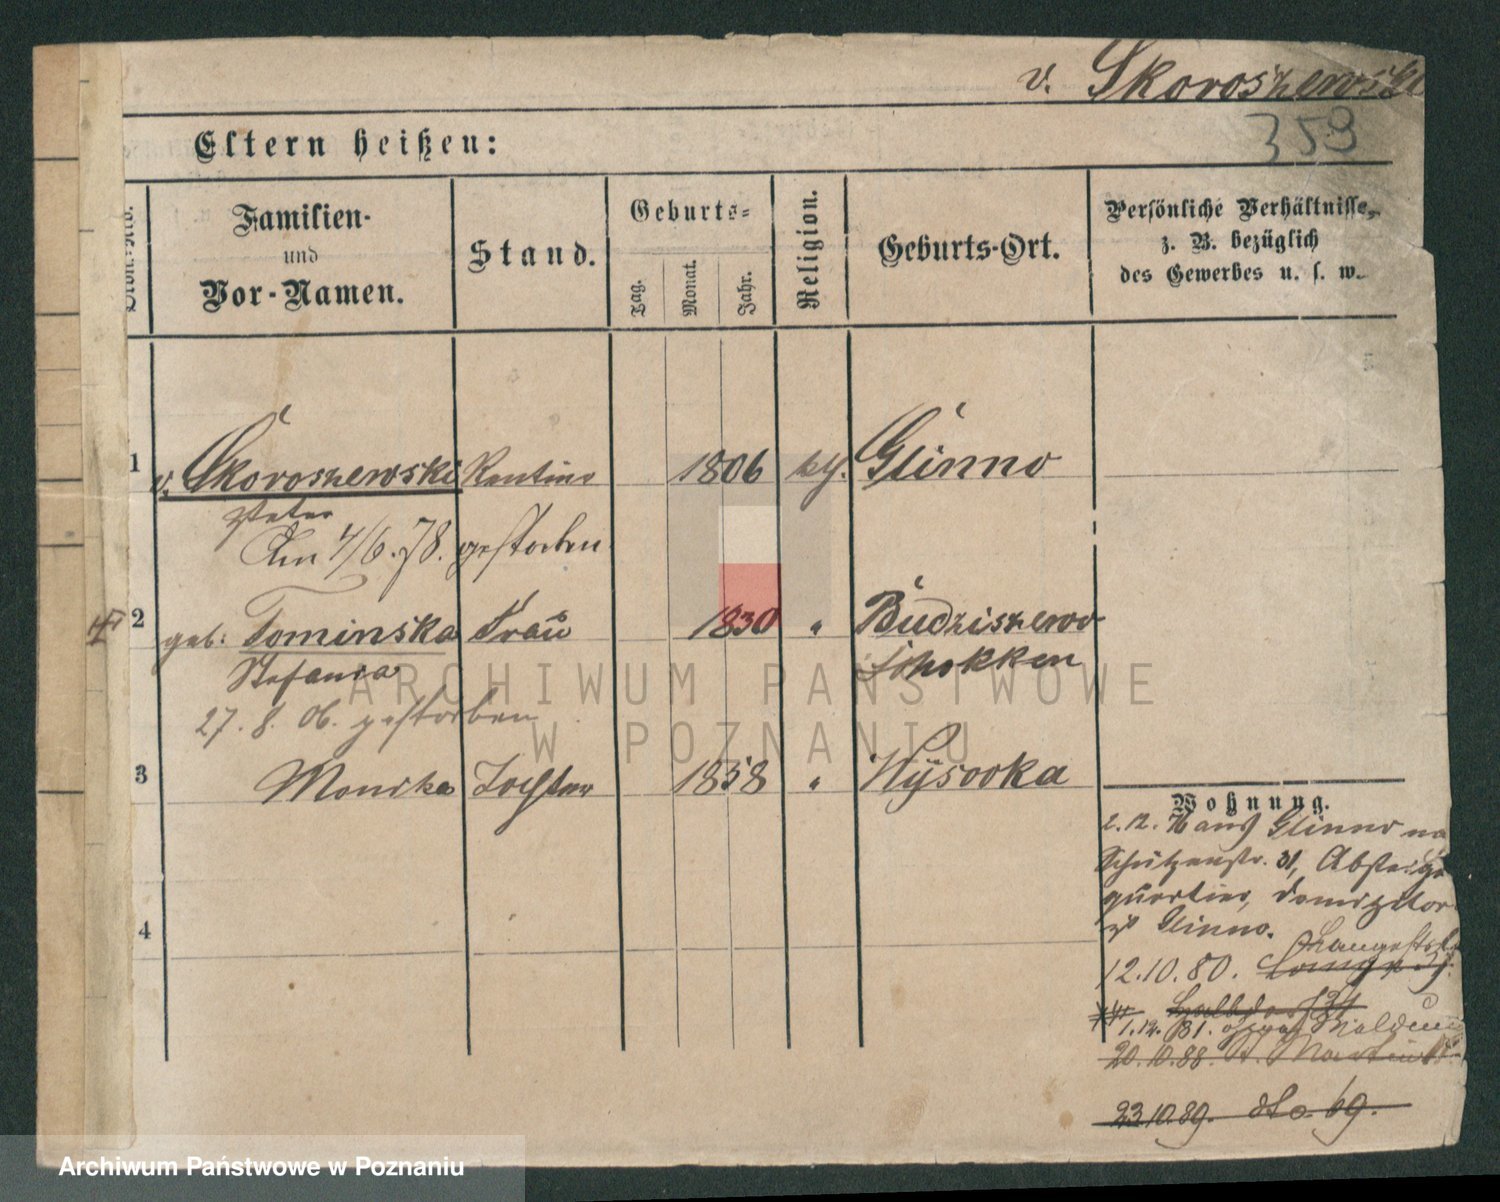 v. Skoroszewski
359
Eltern heißen:
Familien-
und
Vor-Namen.
Stand.
Geburts-
Tag.
Monat.
Jahr.
Religion.
Geburts-Ort.
Persönliche Verhältnisse,
z. B. bezüglich
des Gewerbes u. s. w.
1 v. Skoroszewski Rentier 1806 kth. Glinno
Peter
Am 4/6. 78. gestorben
2 geb. Tominska Frau 1830 " Budziszewo
Stefania Schokken
27. 8. 06. gestorben
3 Monika Tochter 1858 " Wysocka
4
Wohnung.
2. 12. 76 aus Glinno na
Schützenstr. 31, Absteige
quartier, Domizilor
ist Glinno.
Langestr.
12. 10. 80.
Halbdorfstr
1. 12. 81.
20. 10. 88. St. Martin
23.10.89. dto. 69.
ARCHIWUM PAŃSTWOWE
W POZNANIU
Archiwum Państwowe w Poznaniu